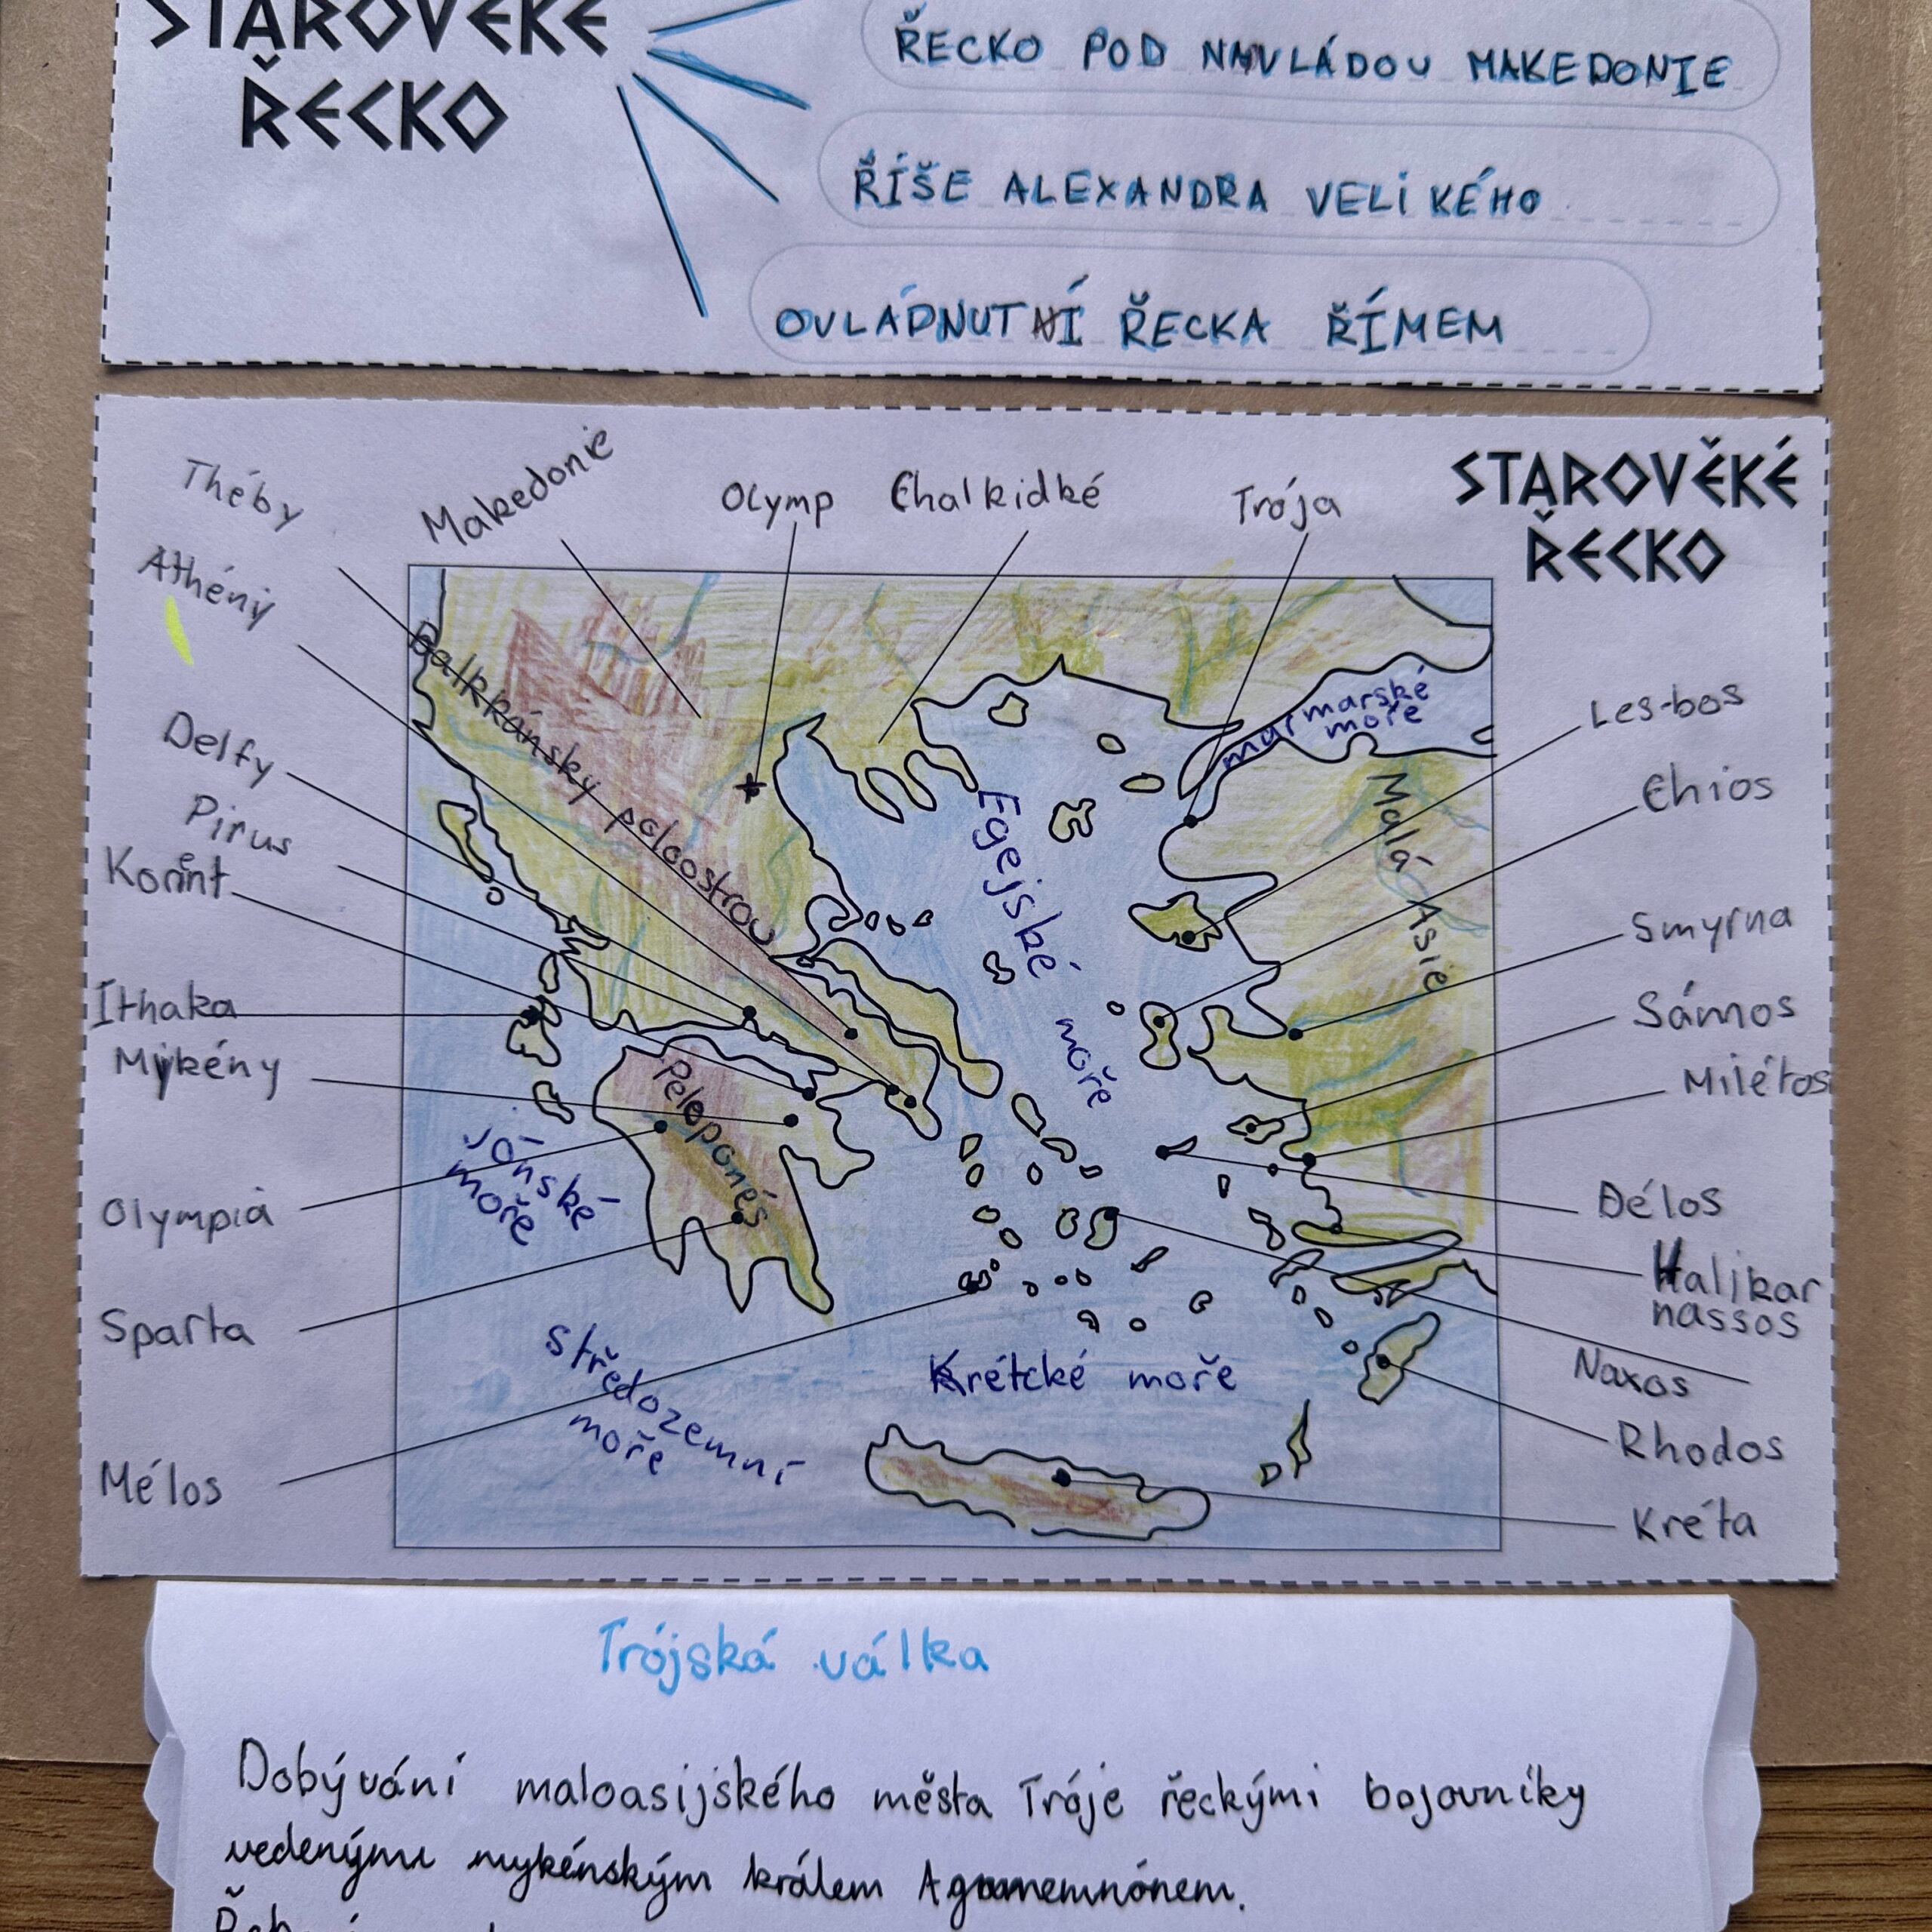 STAROVĚKÉ
ŘECKO
ŘECKO POD NAVLÁDOU MAKEDONIE
ŘÍŠE ALEXANDRA VELIKÉHO
OVLÁDNUTNÍ ŘECKA ŘÍMEM
STAROVĚKÉ
ŘECKO
Théby
Makedonie
Olymp
Chalkidké
Trója
Athény
Delfy
Pirus
Korint
Ithaka
Mykény
Olympia
Sparta
Mélos
Balkkánský poloostrov
marmarské
moře
Egejské moře
Malá Asie
Peloponés
Jónské
moře
Středozemní
moře
Krétcké moře
Les-bos
Chios
Smyrna
Sámos
Milétos
Délos
Halikar
nassos
Naxos
Rhodos
Kréta
Trójská válka
Dobývání maloasijského města Tróje řeckými bojovníky
vedenými mykénským králem Agamemnónem.